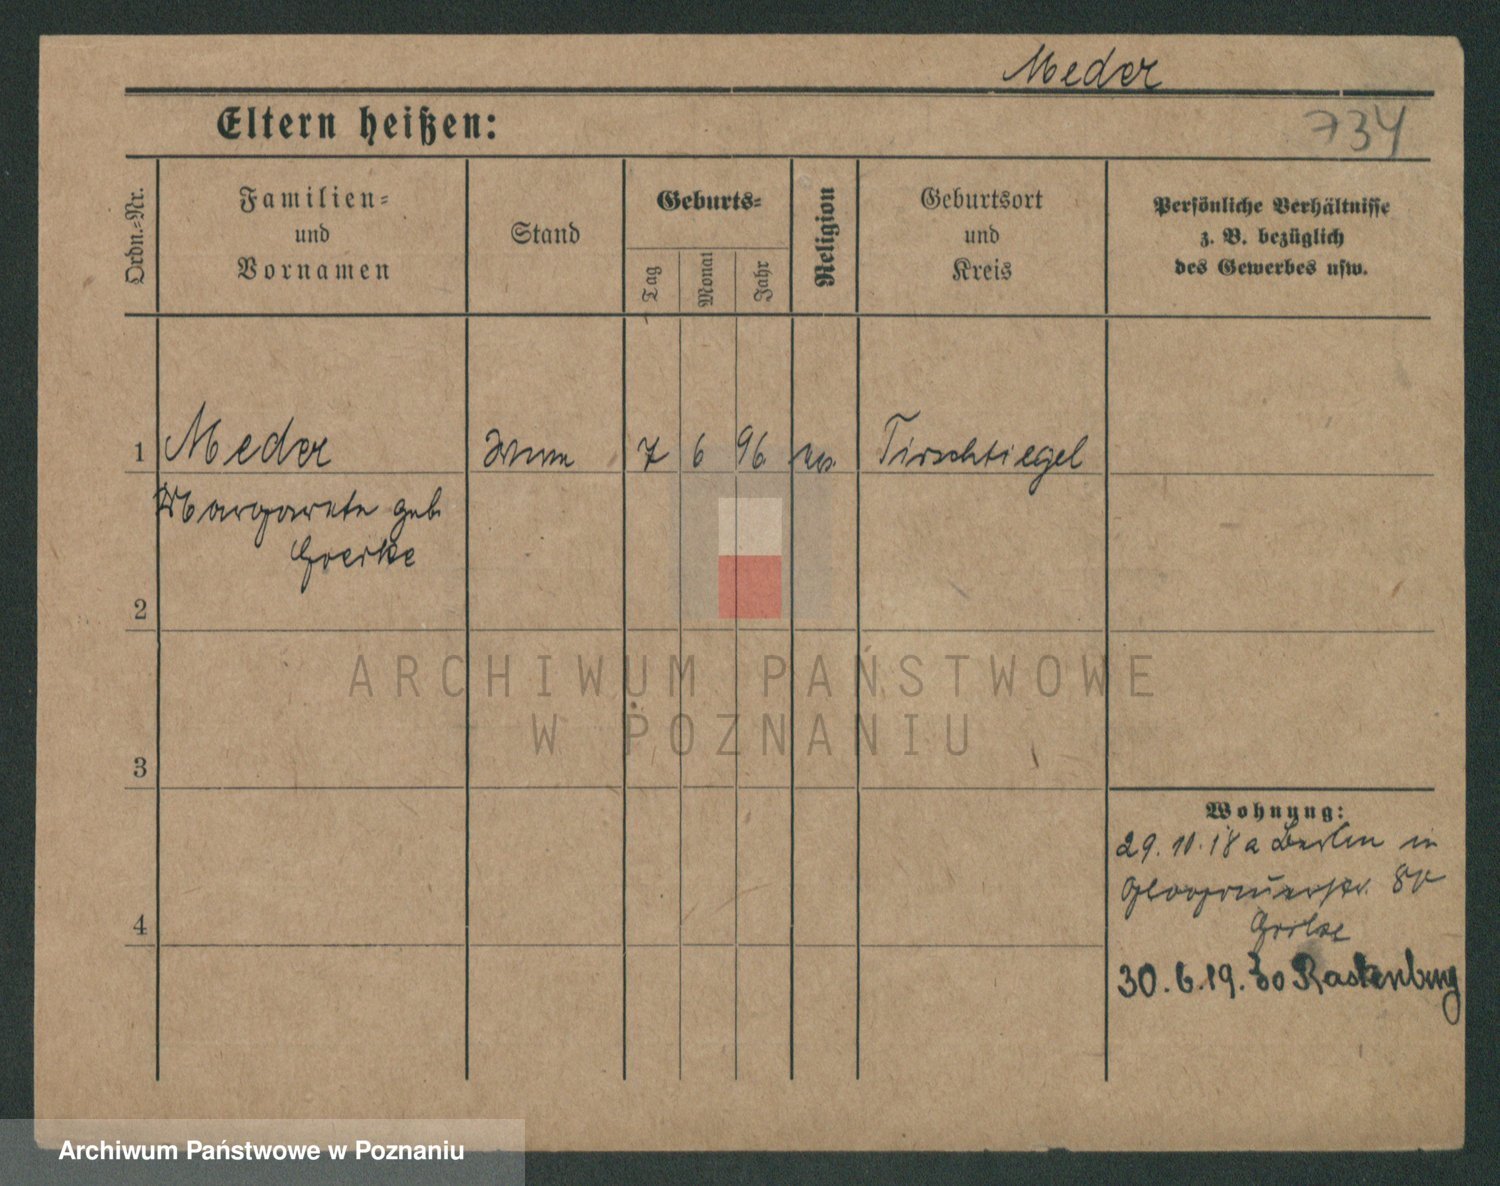 Meder
Eltern heißen:
734
Ordn.-Nr.
Familien-
und
Vornamen
Stand
Geburts-
Tag
Monat
Jahr
Religion
Geburtsort
und
Kreis
Persönliche Verhältnisse
z. B. bezüglich
des Gewerbes usw.
1 Meder 7 6 96 Tirschtiegel
Margarete geb.
Goerke
2
3
4
Wohnung:
29.10.18 a Berlin in
Glogauerstr.
30.6.19. Rastenburg
ARCHIWUM PAŃSTWOWE
W POZNANIU
Archiwum Państwowe w Poznaniu